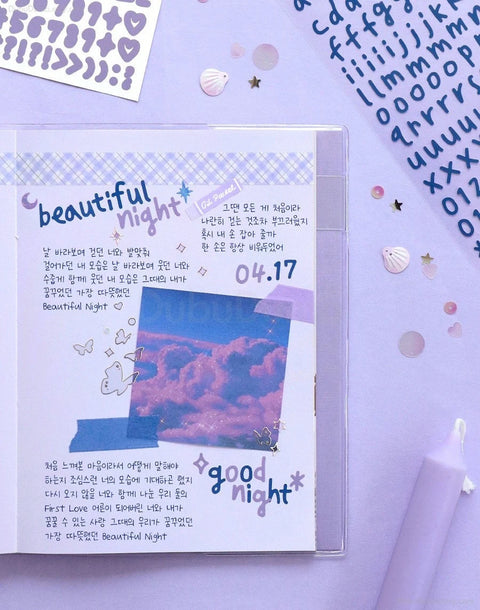 beautiful
night
Od. Pastel
그땐 모든 게 처음이라
나란히 걷는 것조차 부끄러웠지
혹시 내 손 잡아 줄까
한 손은 항상 비워두었어
04.17
날 바라보며 걷던 너와 발맞춰
걸어가던 내 모습은 날 바라보며 웃던 너와
수줍게 함께 웃던 내 모습은 그때의 내가
꿈꾸었던 가장 따뜻했던
Beautiful Night
처음 느껴본 마음이라서 어떻게 말해야
하는지 조심스런 너의 모습에 기대하곤 했지
다시 오지 않을 너와 함께 나눈 우리 둘의
First Love 어른이 되어버린 너와 내가
꿈꿀 수 있는 사랑 그때의 우리가 꿈꾸었던
가장 따뜻했던 Beautiful Night
good
night
56789+
!!!!???
cda
fffg
iiiiijjjk
llmmmm
ooooop
qrrrrs
uuuuu
xxx
012
01